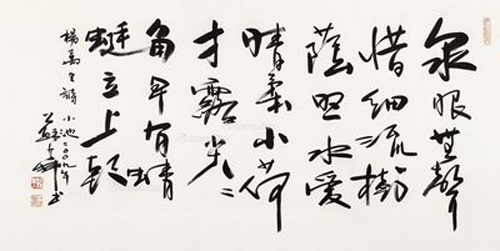 泉眼無聲
惜細流樹
蔭照水愛
晴柔小荷
才露尖〻
角早有蜻
蜓立上頭
楊萬里詩 小池 二〇〇九年
書